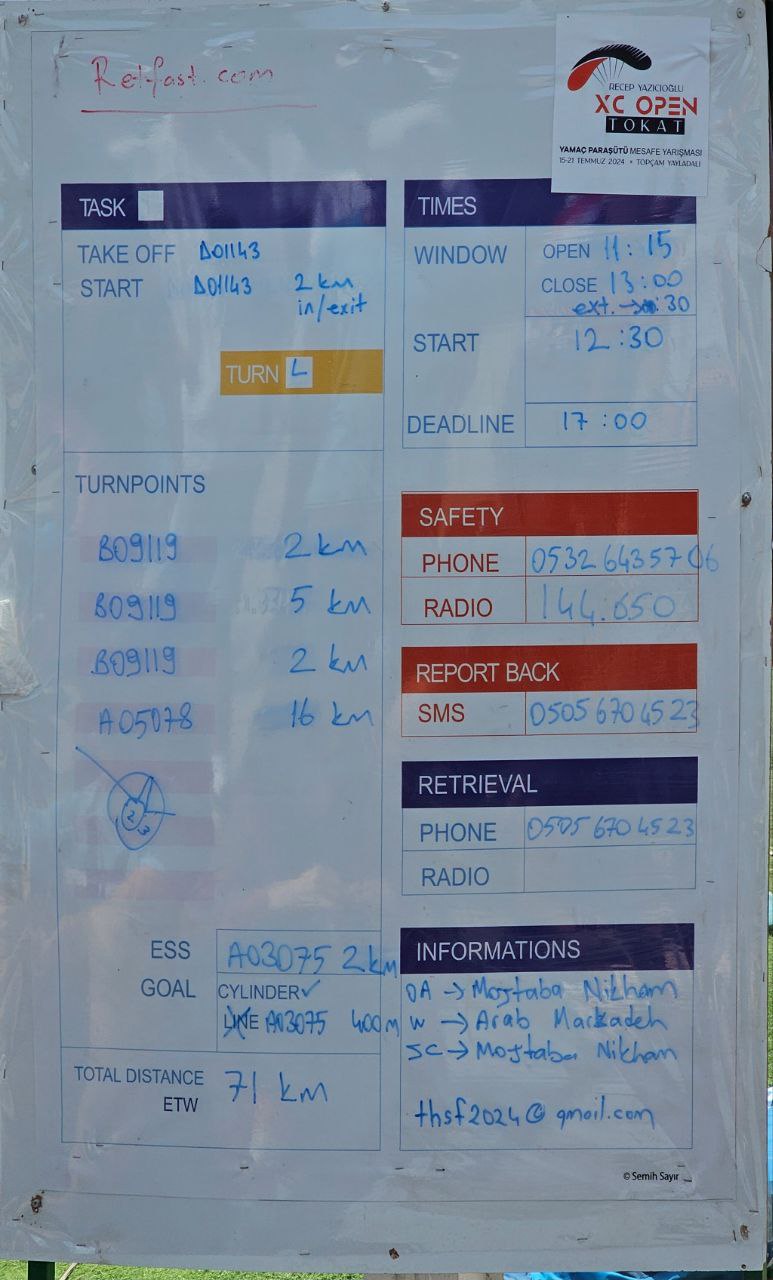 Retfast.com
RECEP YAZICIOĞLU
XC OPEN
TOKAT
YAMAÇ PARAŞÜTÜ MESAFE YARIŞMASI
15-21 TEMMUZ 2024 • TOPÇAM YAYLADALI
TASK
TAKE OFF D01143
START D01143 2 km
in/exit
TURN L
TURNPOINTS
B09119 2 km
B09119 5 km
B09119 2 km
A05078 16 km
2
3
ESS A03075 2 km
GOAL CYLINDER ✓
LINE A03075 400m
TOTAL DISTANCE 71 km
ETW
TIMES
WINDOW OPEN 11:15
CLOSE 13:00
ext. → :30
START 12:30
DEADLINE 17:00
SAFETY
PHONE 0532 6435706
RADIO 144.650
REPORT BACK
SMS 0505 670 4523
RETRIEVAL
PHONE 0505 670 4523
RADIO
INFORMATIONS
OA → Mojtaba Nikham
W → Arab Markadeh
SC → Mojtaba Nikham
thsf2024@gmail.com
© Semih Sayır